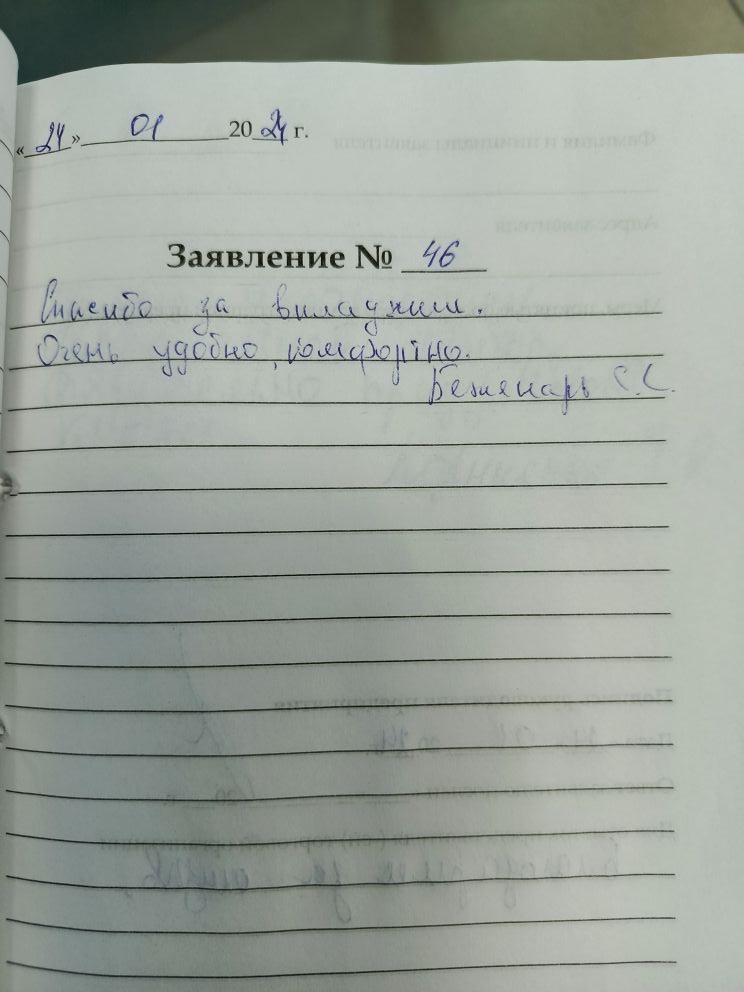 «24» 01 2024 г.
Заявление № 46
Спасибо за
Очень удобно, комфортно.
Беженарь С.С.